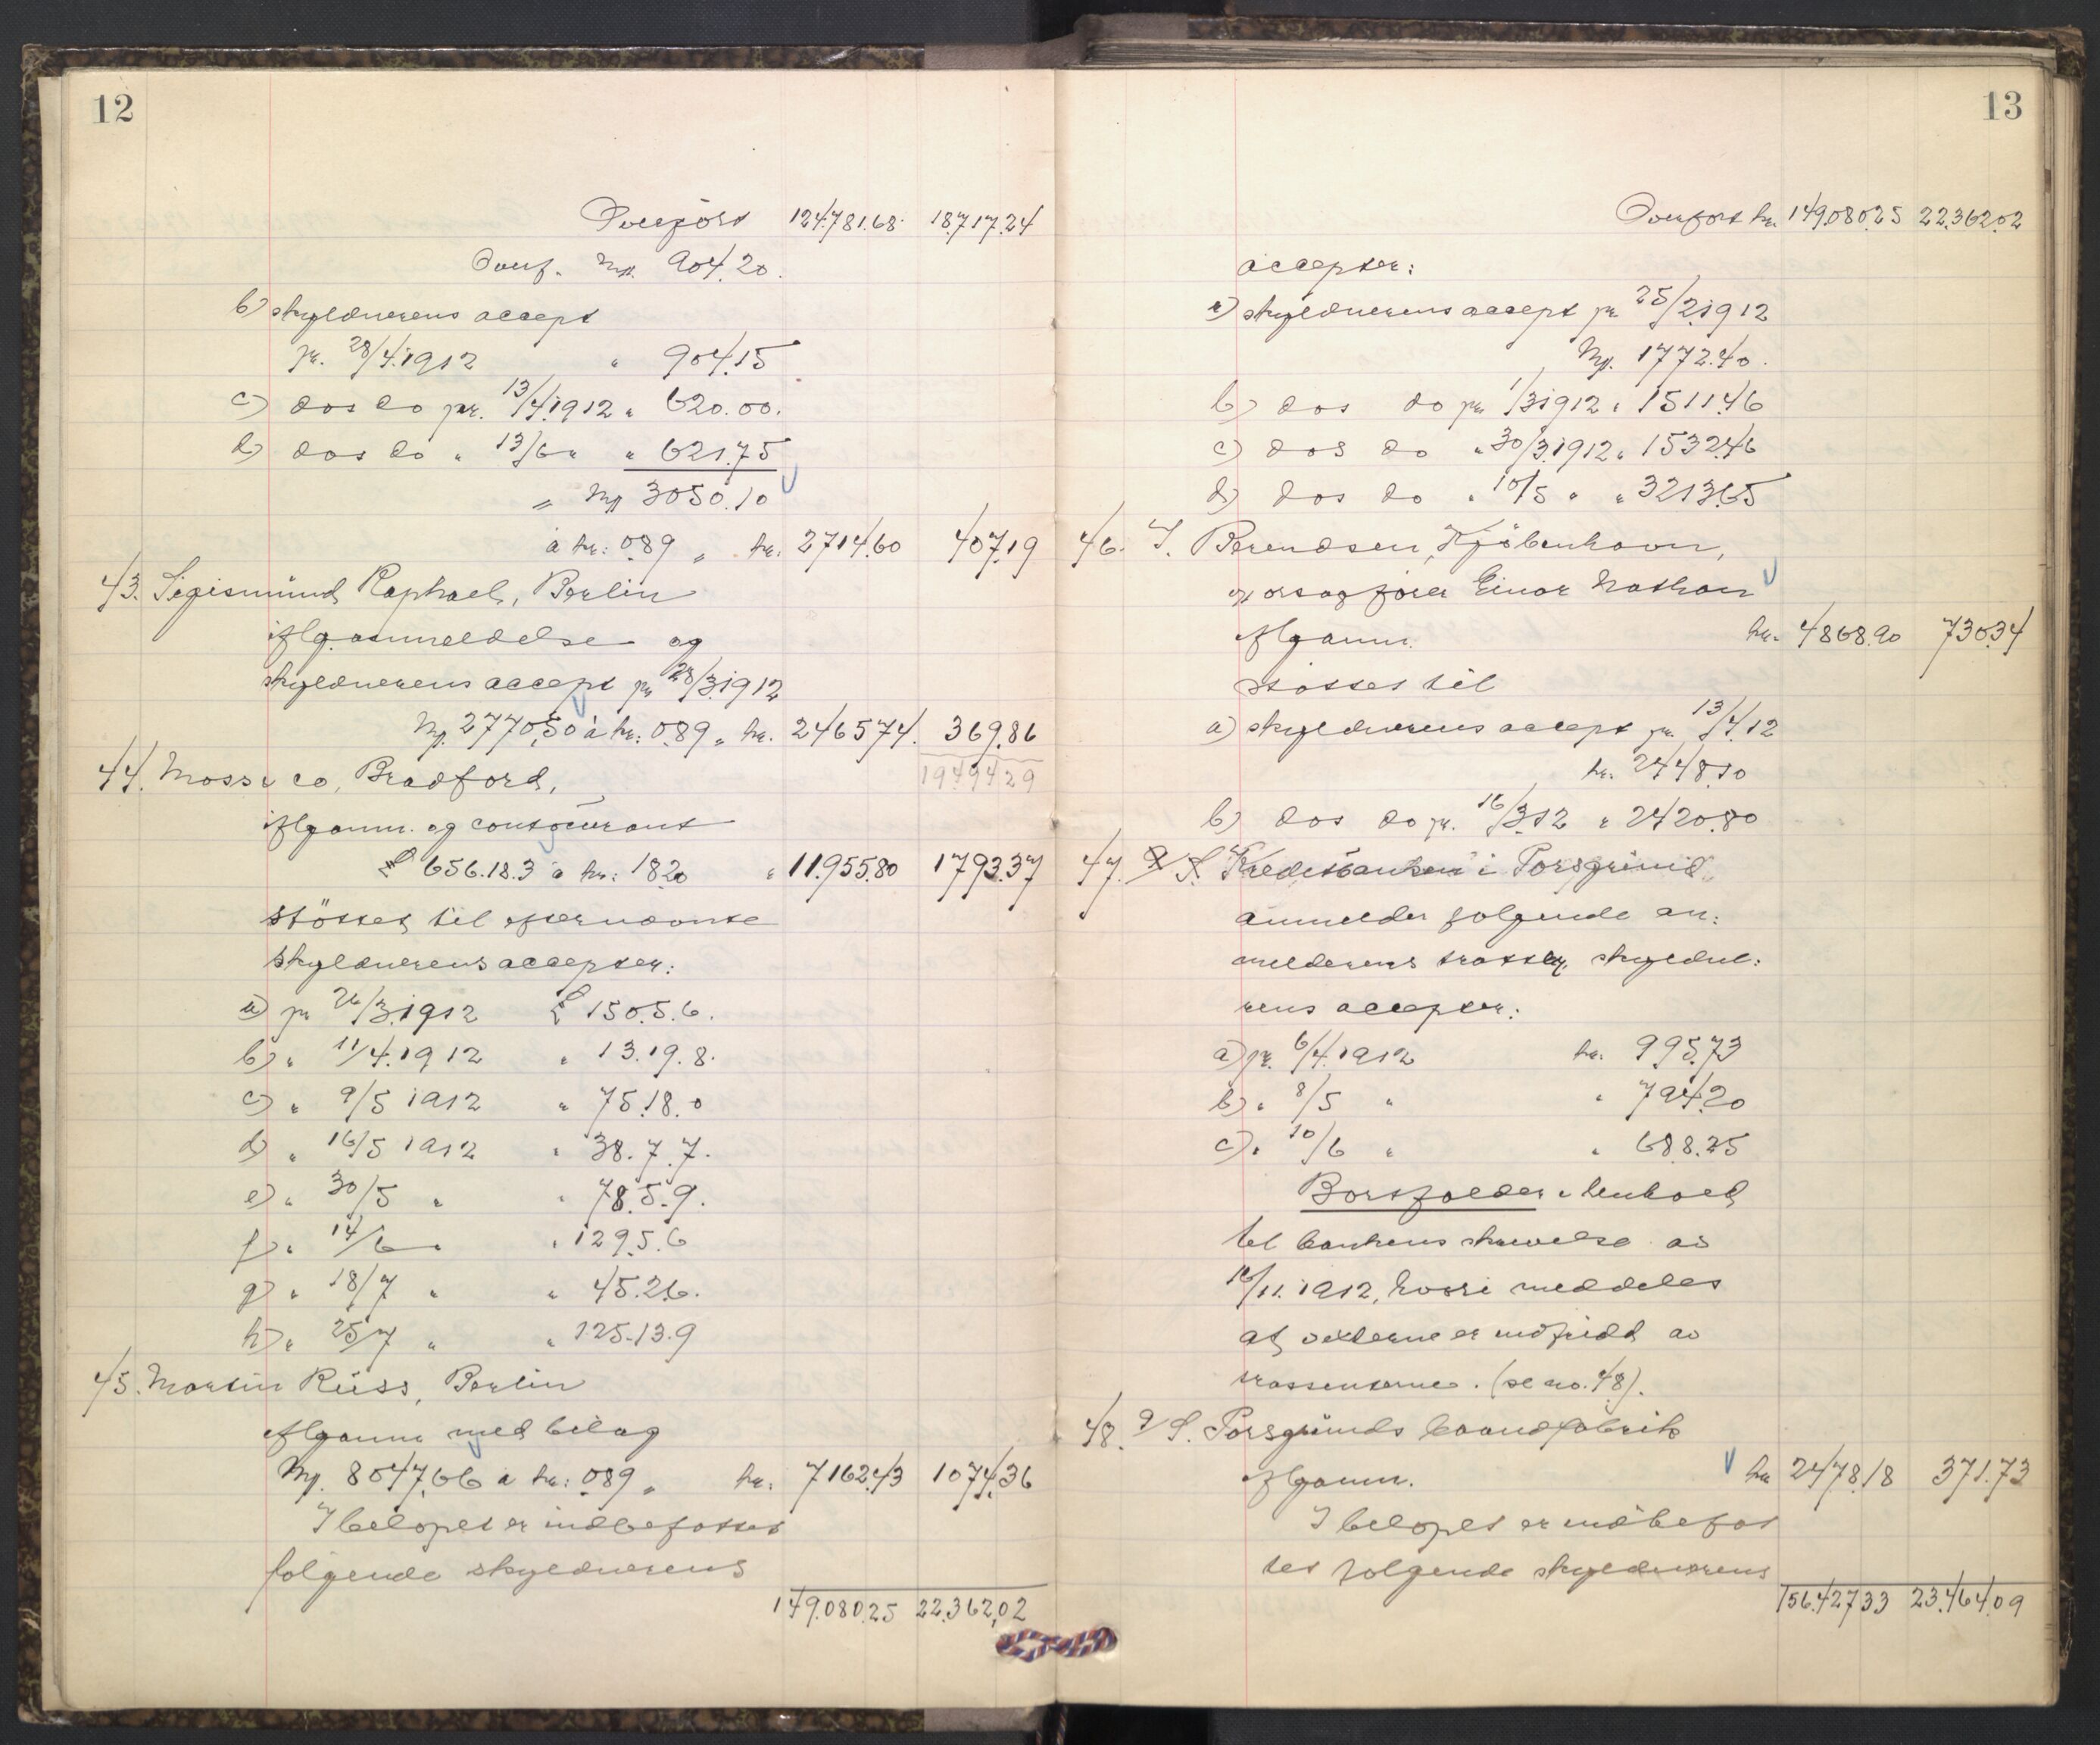 12
Overført 124.781.68. 18.717.24
Overf. Mk. 904.20.
b) skyldnerens accept
pr. 28/4.1912 " 904.15
c) dos do pr. 13/4.1912 " 620.00.
d) dos do " 13/6 " " 621.75
= Mk 3050.10
a kr: 0.89 " kr. 2714.60 407.19
43. Sigismund Raphael, Berlin
iflg. anmeldelse og
skyldnerens accept pr 28/3.1912
Mk. 2770,50 à kr: 0.89 " kr. 2465.74. 369.86
19494 29
44. Moss & co, Bradford,
iflg anm. og contocurant
£ 656.18.3 à kr: 18.20 " 11.955.80 1793.37
støttet til efternævnte
skyldnerens accepter:
a) pr 26/3.1912 £ 150.5.6.
b) " 11/4.1912 " 13.19.8.
c) " 9/5 1912 " 75.18.0
d) " 16/5 1912 " 38.7.7.
e) " 30/5 " " 78.5.9.
f) " 14/6 " " 129.5.6
g) " 18/7 " " 45.2.6.
h) " 25/7 " " 125.13.9
45. Martin Rüss, Berlin
iflg anm med bilag
Mk. 8047,66 a kr: 0.89 " kr. 7162.43 1074.36
I beløpet er indbefattet
følgende skyldnerens
149.080.25 22.362,02
13
Overført kr. 149.080.25 22.362.02
accepter:
a) skyldnerens accept pr 25/2.1912
Mk. 1772.40.
b) dos do pr 1/3 1912 " 1511.46
c) dos do " 30/3.1912 " 1532.46
d) dos do " 10/5 " " 3213.65
46. I. Berendsen, Kjøbenhavn,
v/ orsagfører Einar Nathan
iflg anm. kr. 4868.90 730.34
støttet til
a) skyldnerens accept pr. 13/4.12
kr. 2448.10
b) dos do pr. 16/3.12 " 2420.80
47. A/S. Kreditbanken i Porsgrund,
anmelder følgende an:
melderens tratter, skyldne:
rens accepter:
a) pr. 6/4.1912 kr. 995.73
b) " 8/5 " " 794.20
c) " 10/6 " " 688.25
Bortfalder i henhold
til bankens skrivelse av
16/11.1912, hvori meddeles
at vexlerne er indfridd av
trassenterne. (se no. 48).
48. A/S. Porsgrunds baandfabrik
iflg anm. kr 2478.18 371.73
I beløpet er indbefat
tet følgende skyldnerens
156.427 33 23.464.09